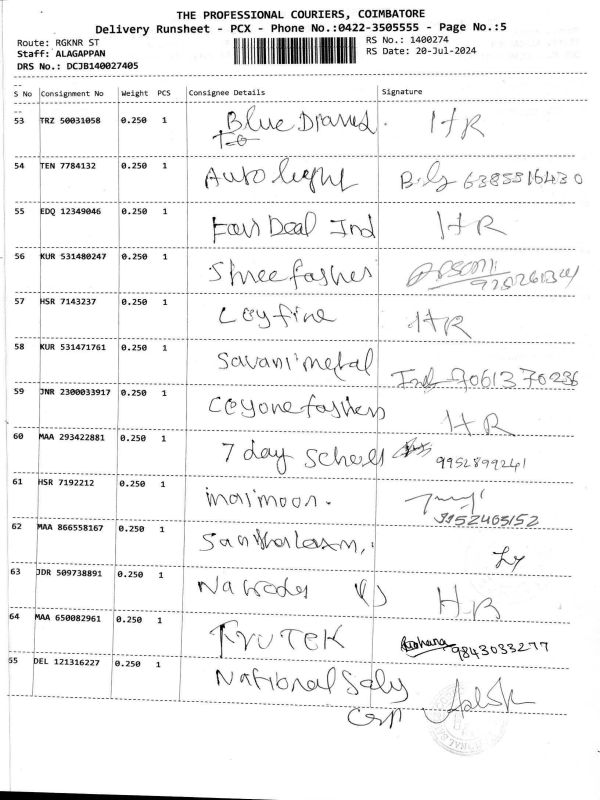 THE PROFESSIONAL COURIERS, COIMBATORE
Delivery Runsheet - PCX - Phone No.:0422-3505555 - Page No.:5
Route: RGKNR ST RS No.: 1400274
Staff: ALAGAPPAN RS Date: 20-Jul-2024
DRS No.: DCJB140027405
S No Consignment No Weight PCS Consignee Details Signature
53 TRZ 50031058 0.250 1 Blue HR
54 TEN 7784132 0.250 1 Auto light 6385516430
55 EDQ 12349046 0.250 1 Fair Deal Ind HR
56 KUR 531480247 0.250 1 Shree
57 HSR 7143237 0.250 1 Ceyfine HR
58 KUR 531471761 0.250 1 Savani metal
7061370236
59 JNR 2300033917 0.250 1 Ceyone HR
60 MAA 293422881 0.250 1 7 day
9952899241
61 HSR 7192212 0.250 1
62 MAA 866558167 0.250 1
63 JDR 509738891 0.250 1 HR
64 MAA 650082961 0.250 1 9843033277
65 DEL 121316227 0.250 1 National